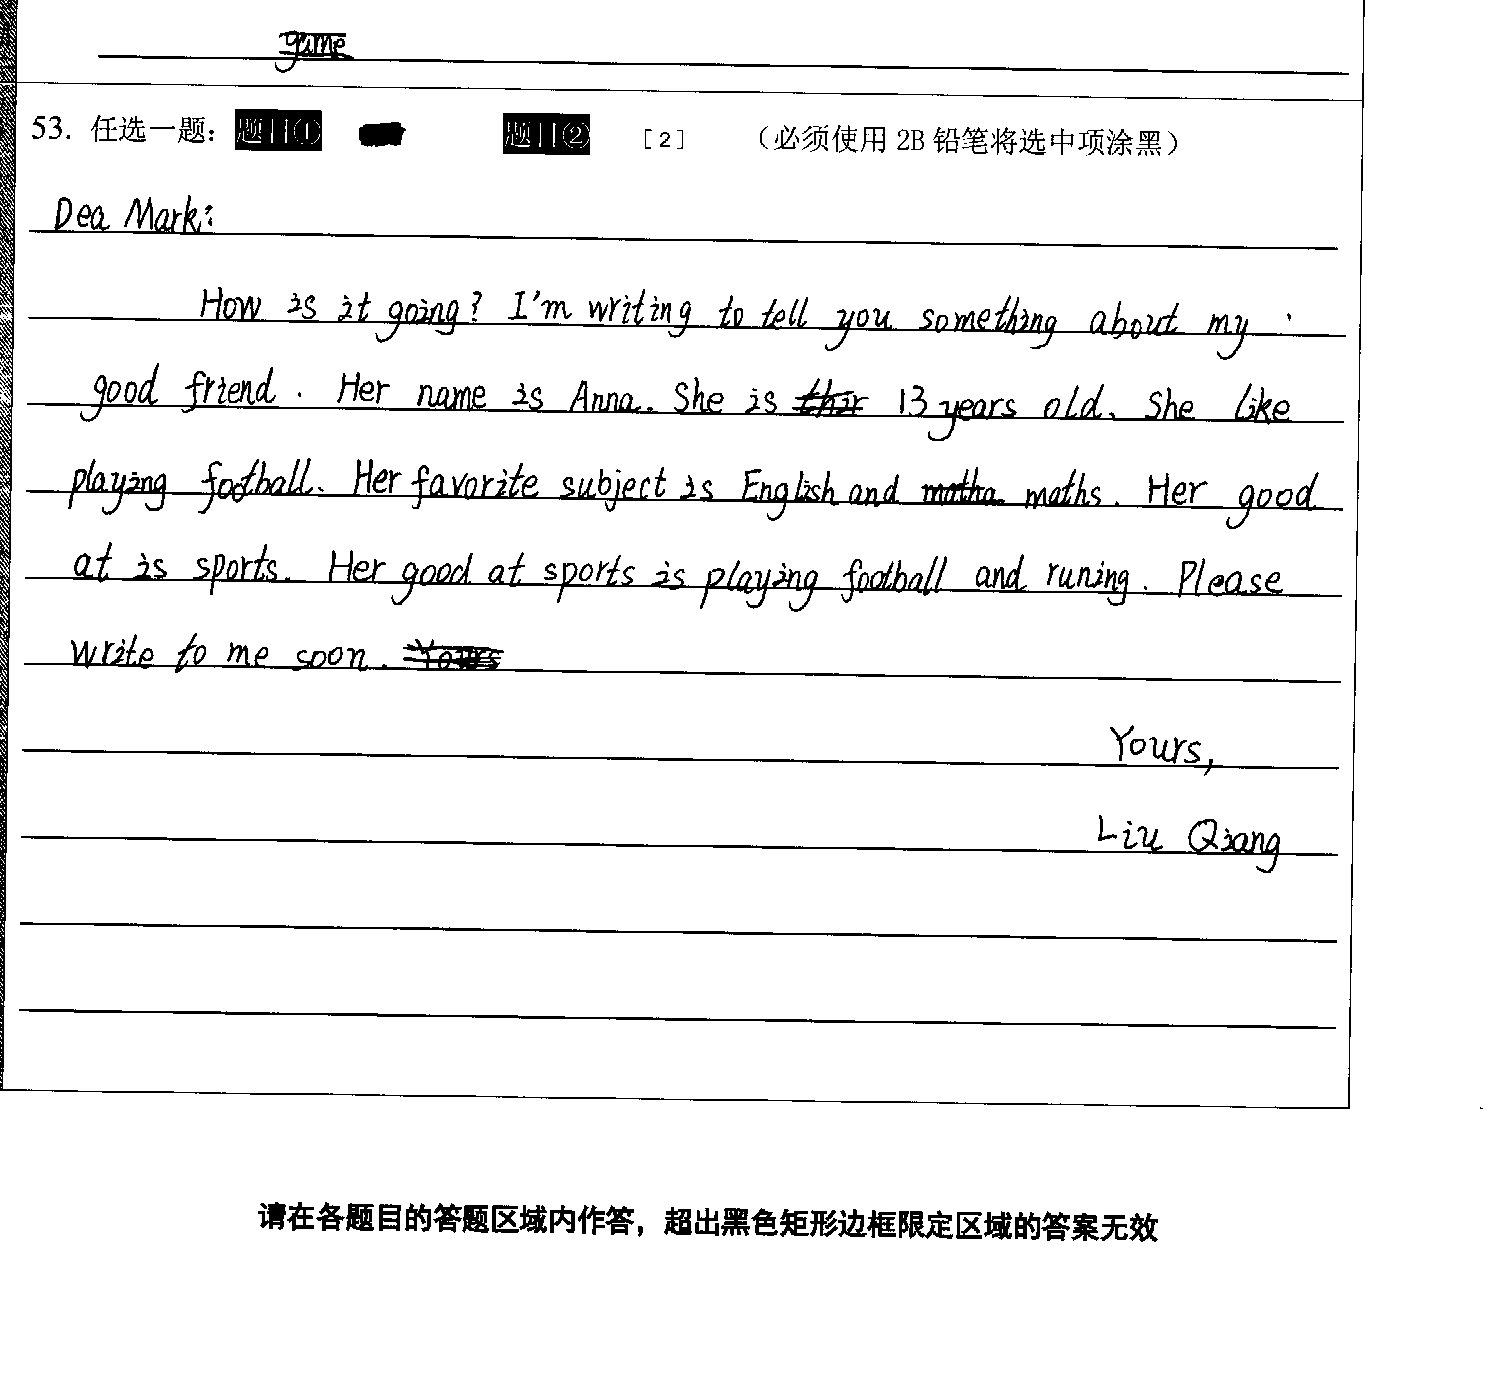 game
53. 任选一题: 题目① 题目② [2] (必须使用 2B 铅笔将选中项涂黑)
Dea Mark:
How is it going? I'm writing to tell you something about my
good friend. Her name is Anna. She is thir 13 years old. She like
playing football. Her favorite subject is English and matha maths. Her good
at is sports. Her good at sports is playing football and runing. Please
write to me soon. Yours
Yours,
Liu Qiang
请在各题目的答题区域内作答，超出黑色矩形边框限定区域的答案无效